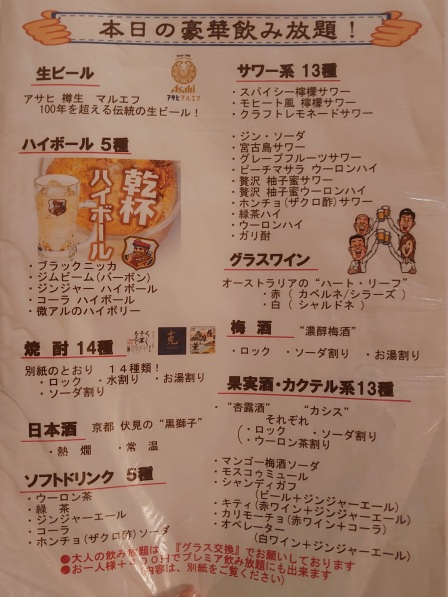 本日の豪華飲み放題！
生ビール
アサヒ 樽生 マルエフ
100年を超える伝統の生ビール！
Asahi
アサヒマルエフ
ハイボール 5種
乾杯
ハイボール
・ブラックニッカ
・ジムビーム(バーボン)
・ジンジャー ハイボール
・コーラ ハイボール
・微アルのハイボリー
焼 酎 14種
別紙のとおり １４種類！
・ロック ・水割り ・お湯割り
・ソーダ割り
日本酒 京都 伏見の"黒獅子"
・熱 燗 ・常 温
ソフトドリンク 5種
・ウーロン茶
・緑 茶
・ジンジャーエール
・コーラ
・ホンチョ(ザクロ酢)ソーダ
サワー系 13種
・スパイシー檸檬サワー
・モヒート風 檸檬サワー
・クラフトレモネードサワー
・ジン・ソーダ
・宮古島サワー
・グレープフルーツサワー
・ピーチマサラ ウーロンハイ
・贅沢 柚子蜜サワー
・贅沢 柚子蜜ウーロンハイ
・ホンチョ(ザクロ酢)サワー
・緑茶ハイ
・ウーロンハイ
・ガリ酎
グラスワイン
オーストラリアの"ハート・リーフ"
・赤 ( カベルネ/シラーズ )
・白 ( シャルドネ )
梅 酒 "濃醇梅酒"
・ロック ・ソーダ割り ・お湯割り
果実酒・カクテル系13種
・"杏露酒" "カシス"
それぞれ
(・ロック ・ソーダ割り
・ウーロン茶割り )
・マンゴー梅酒ソーダ
・モスコゥミュール
・シャンディガフ
(ビール＋ジンジャーエール)
・キティ(赤ワイン＋ジンジャーエール)
・カリモーチョ(赤ワイン＋コーラ)
・オペレーター
(白ワイン＋ジンジャーエール)
●大人の飲み放題は、『グラス交換』でお願いしております
●お一人様＋ 円でプレミア飲み放題にも出来ます
内容は、別紙をご覧ください)